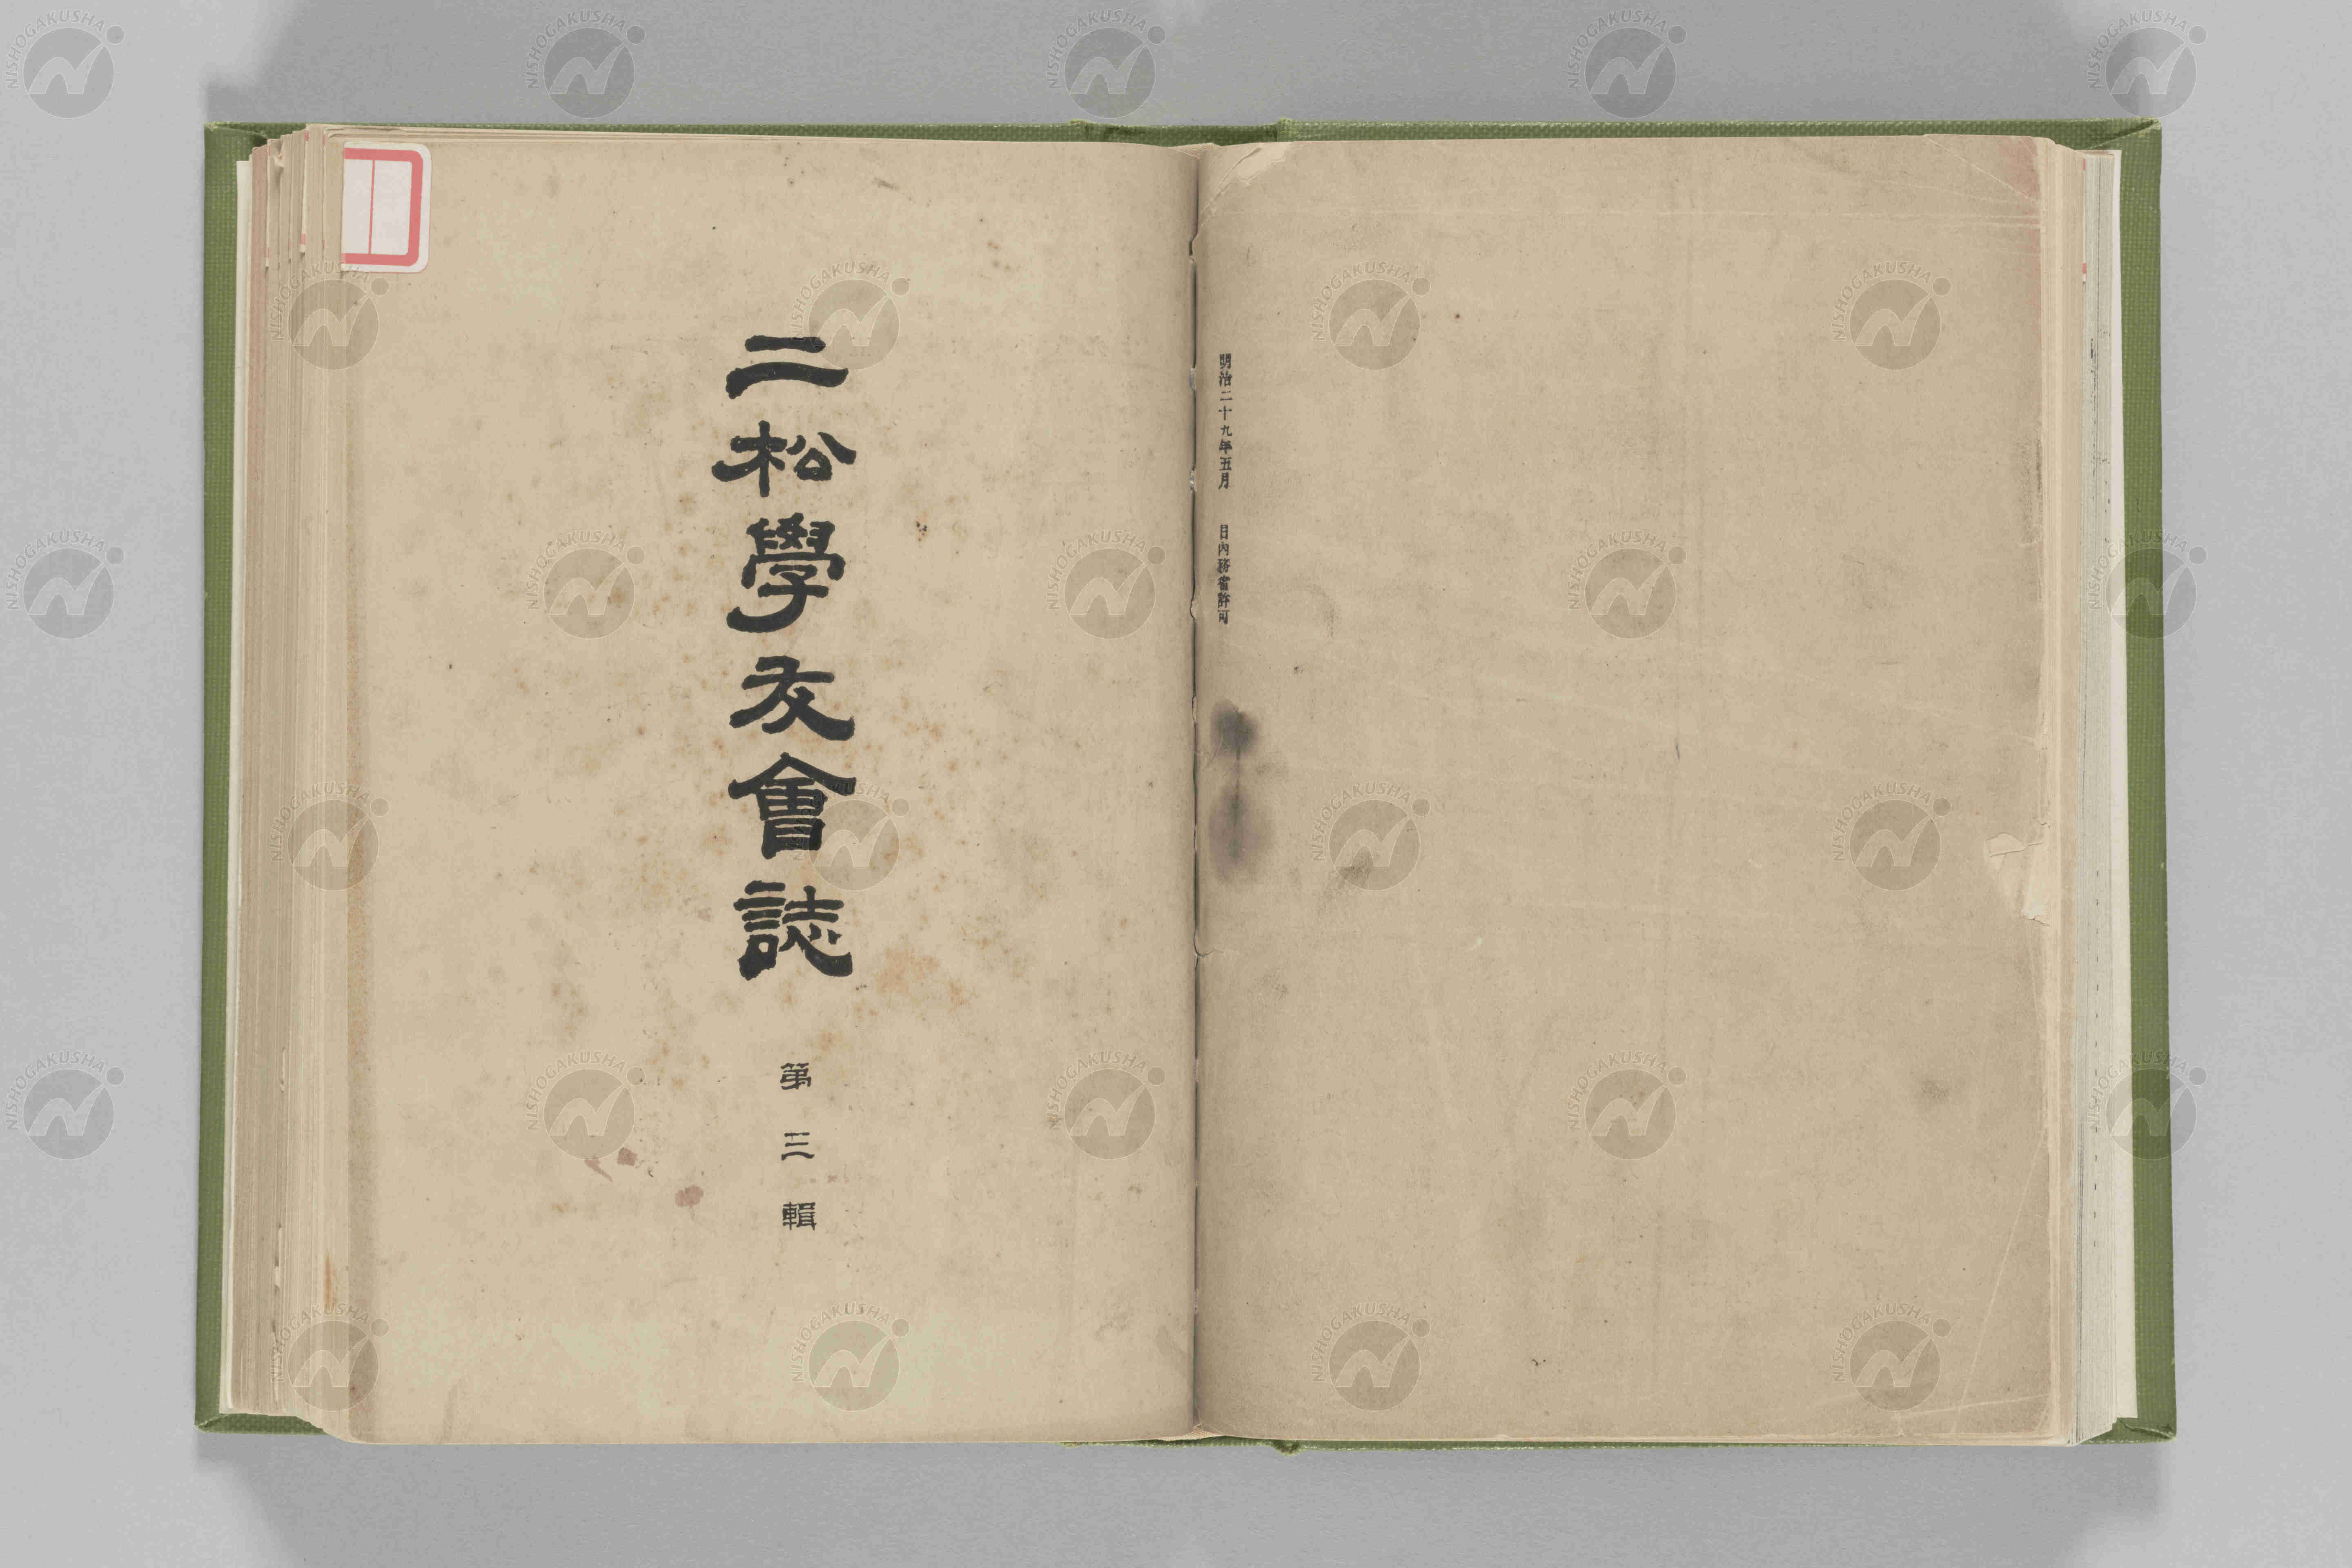 明治二十九年五月　日内務省許可
二松學友會誌
第三輯
NISHOGAKUSHA